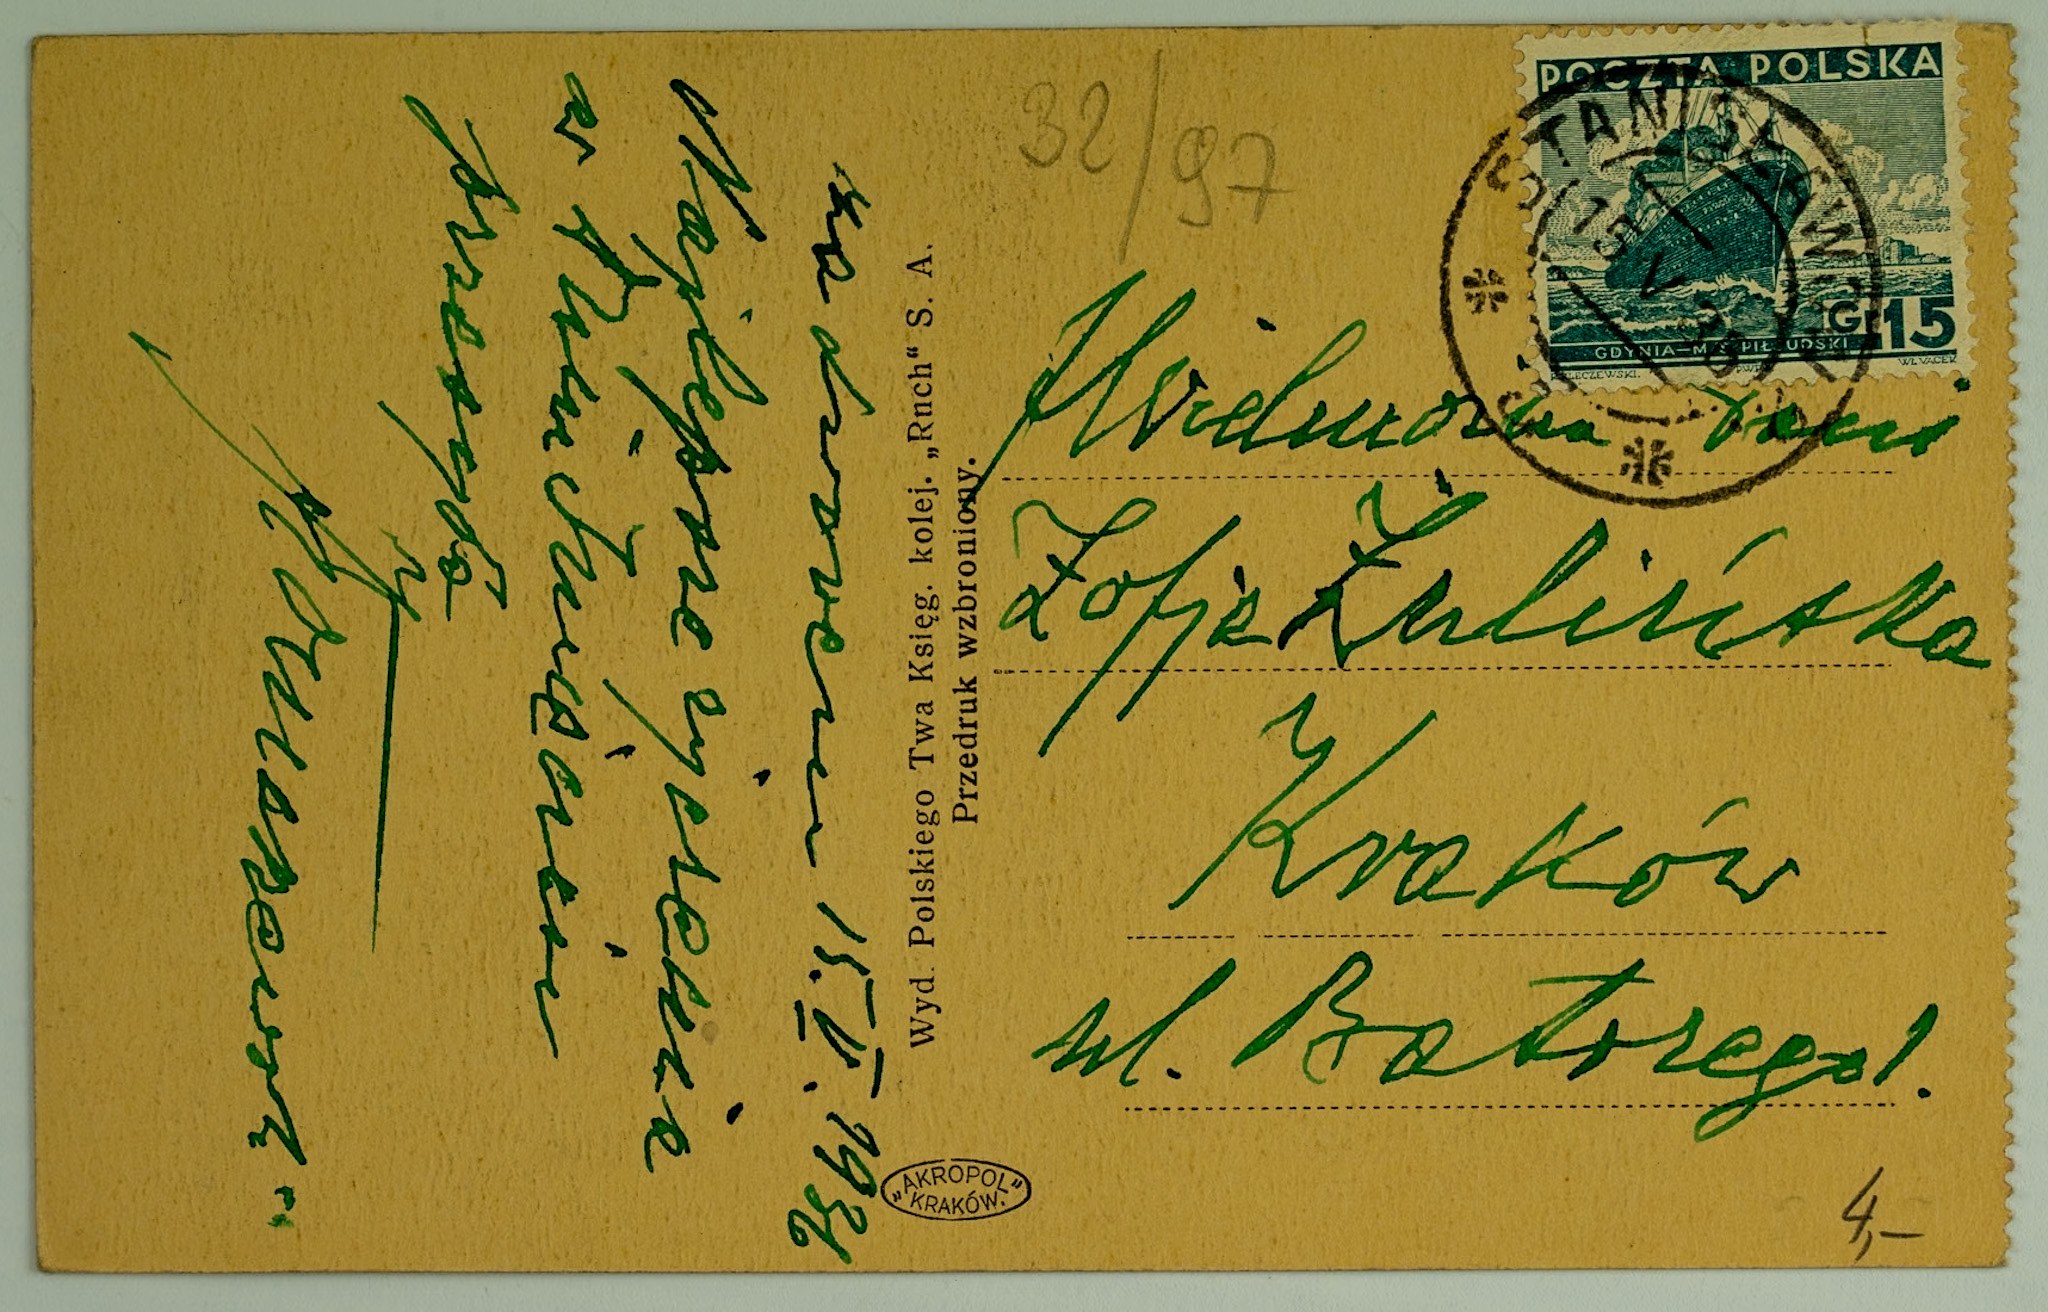 Nadwórna 15.V.1936
Najlepsze życzenia
w dniu Imienin
przesyła
32/97
Wyd. Polskiego Twa Księg. kolej. „Ruch“ S. A.
Przedruk wzbroniony.
„AKROPOL”
KRAKÓW.
POCZTA POLSKA
GR 15
GDYNIA—M/S PIŁSUDSKI
WŁ. VACEK
STANISŁAWÓW
Wielmożna Pani
Zofja Żulińska
Kraków
ul. Batorego 1.
4,-